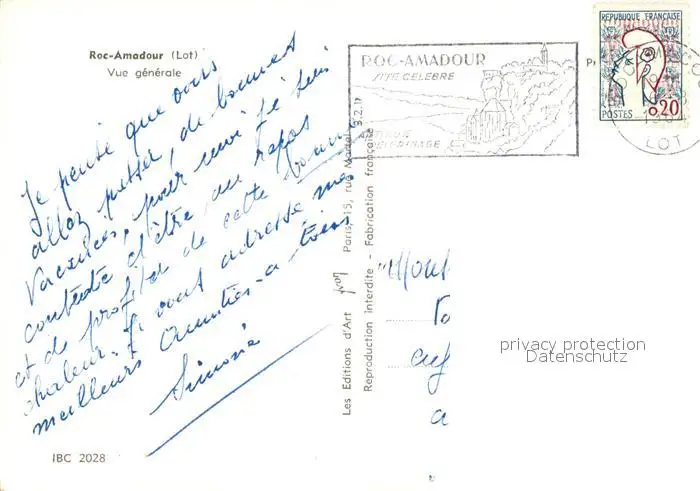 Roc-Amadour (Lot)
Vue générale
Je pense que vous
allez passer, de bonnes
Vacances, pour moi je suis
contente d'être au repos
et de profiter de cette bonne
chaleur. Je vous adresse mes
meilleurs Amitiés a tous
Simone
IBC 2028
Les Editions d'Art Yvon Paris, 15, rue Martel 3.2.11
Reproduction interdite - Fabrication française
ROC-AMADOUR
SITE CÉLÈBRE
REPUBLIQUE FRANÇAISE
0,20
POSTES
LOT
privacy protection
Datenschutz